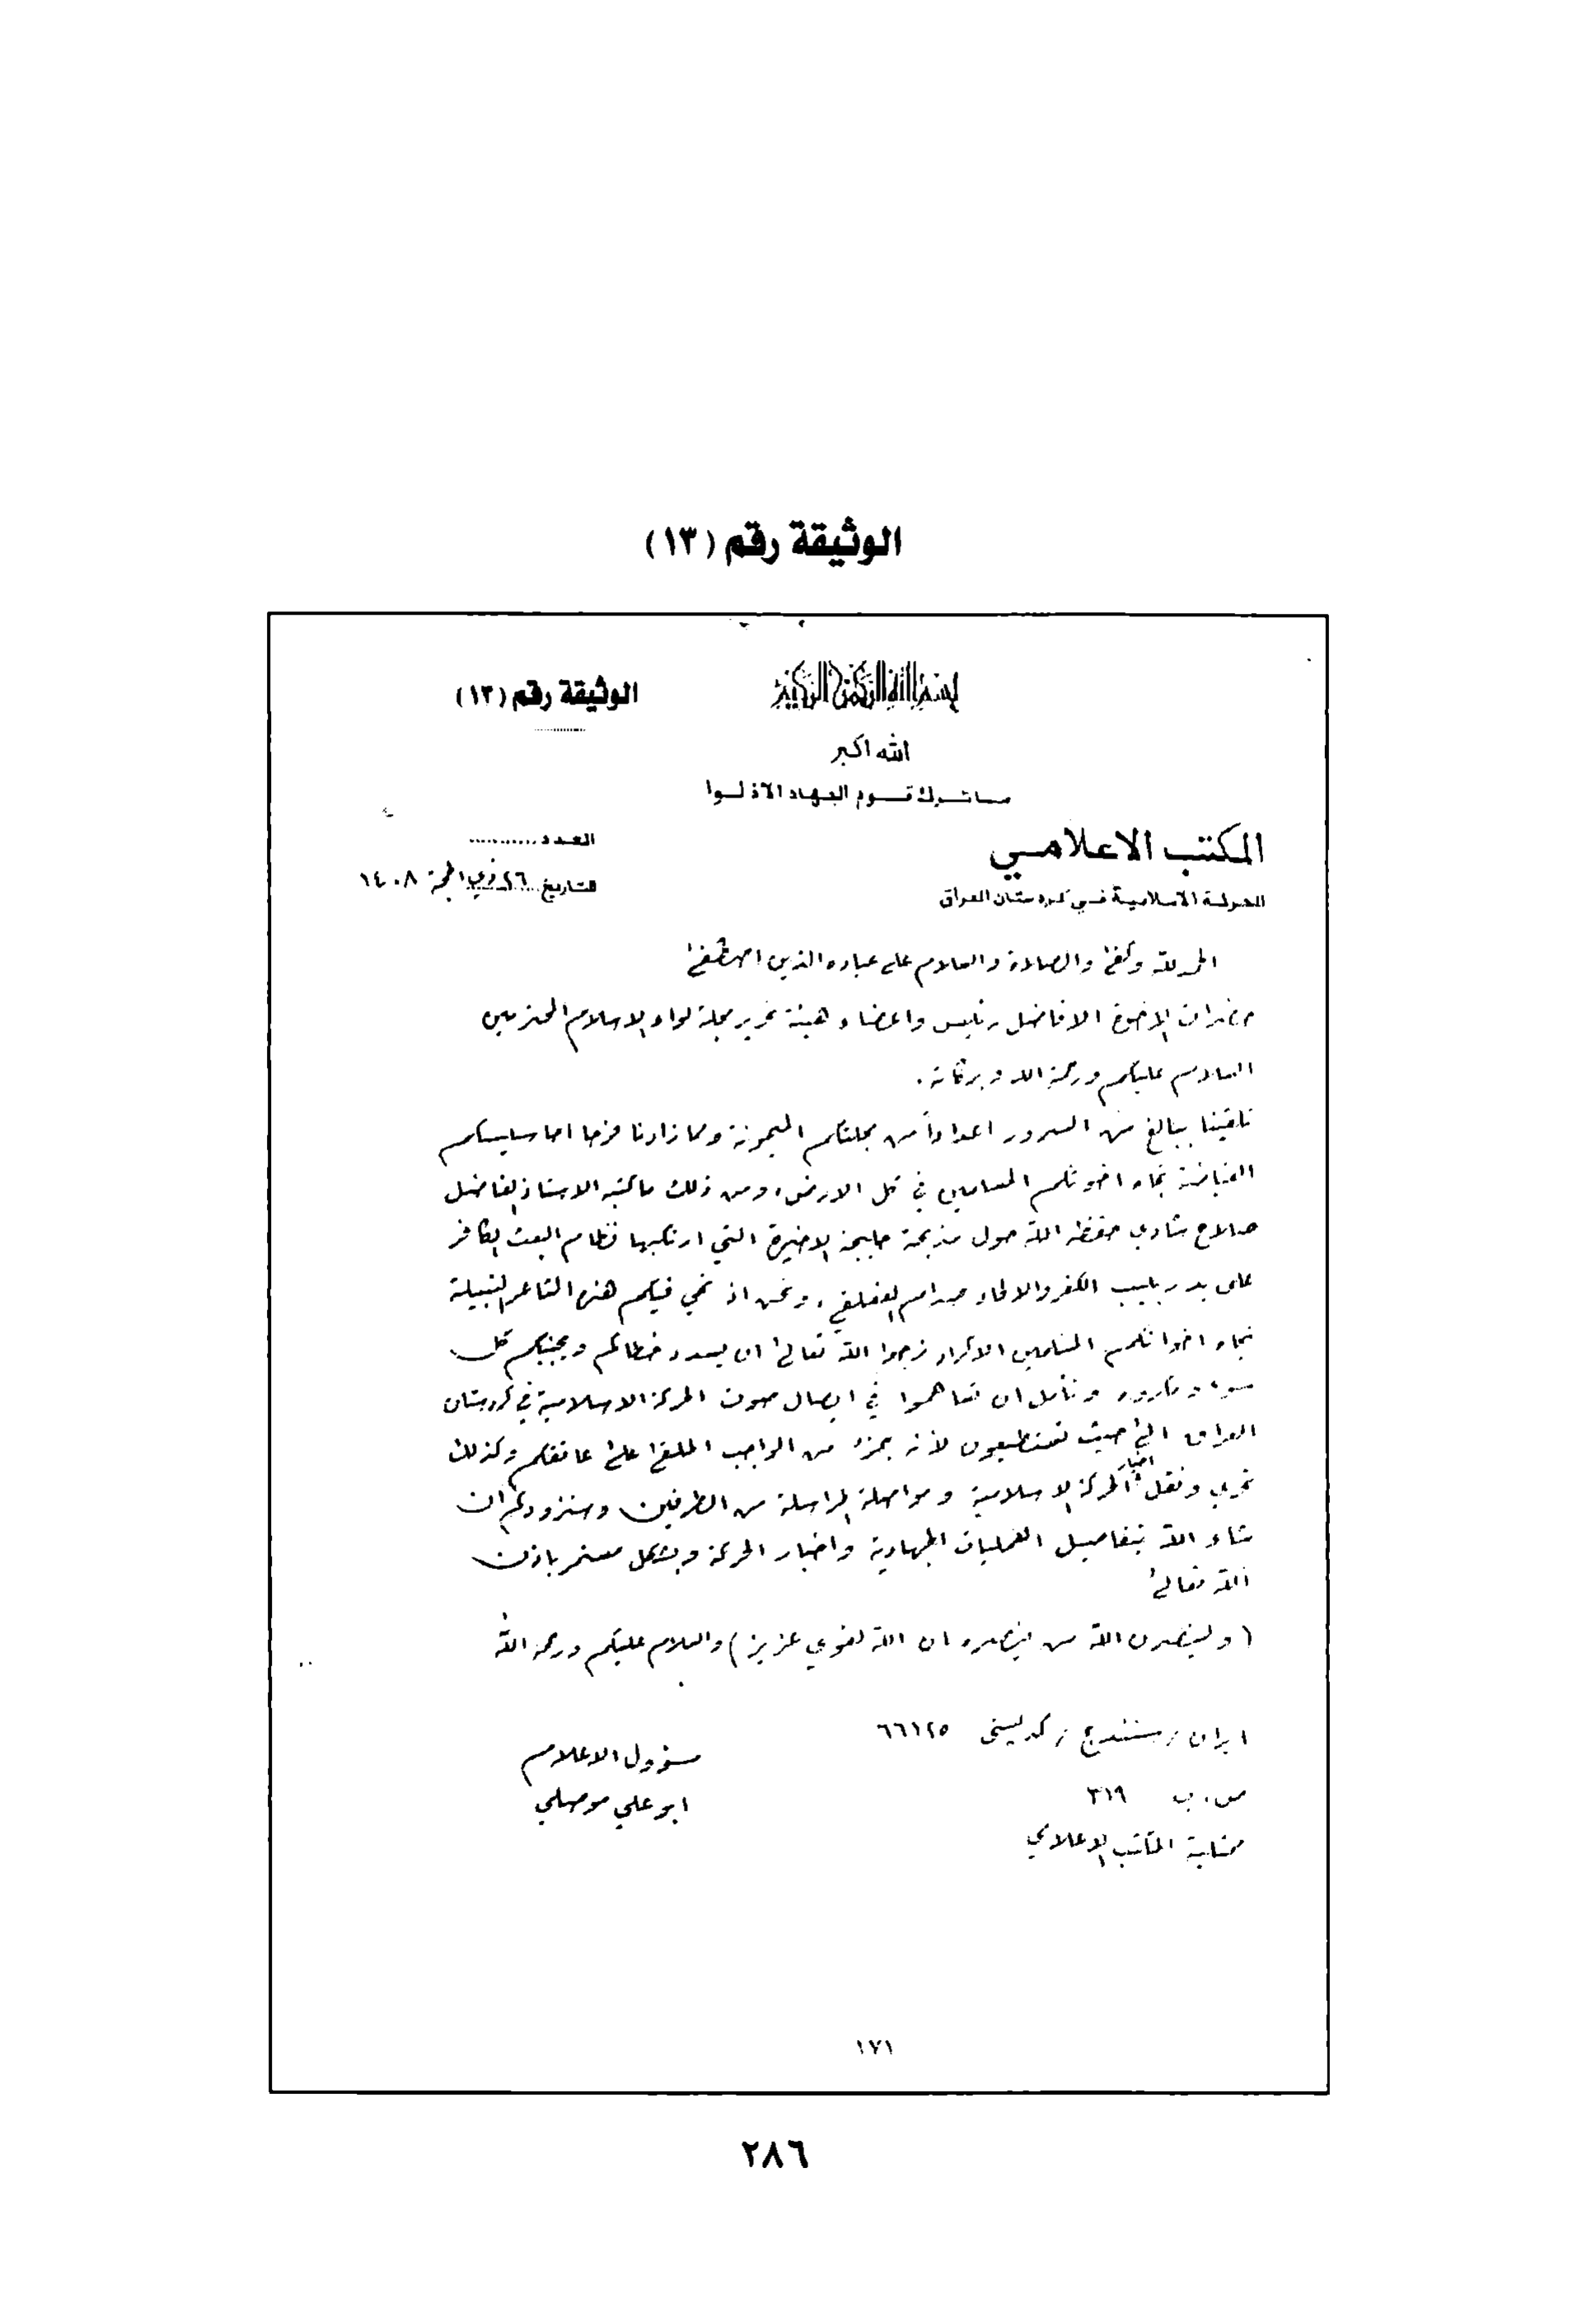 الوثيقة رقم (١٣)
بسم الله الرحمن الرحيم
الوثيقة رقم (١٣)
الله اكبر
ما ترك قوم الجهاد الا ذلوا
المكتب الاعلامي
العدد ...........
الحركة الاسلامية في كردستان العراق
التاريخ ٢٦ ذي الحجة ١٤٠٨
الحمد لله وكفى والصلاة والسلام على عباده الذين اصطفى
حضرات الاخوة الافاضل رئيس واعضاء هيئة تحرير مجلة لواء الاسلام المحترمين
السلام عليكم ورحمة الله وبركاته .
تلقينا ببالغ من السرور اعداداً من مجلتكم الميمونة ومما زادنا فرحا احاسيسكم
الفياضة تجاه اخوتكم المسلمين في كل الارض، ومن ذلك ما كتبه الاستاذ الفاضل
صلاح شادي حفظه الله حول مذبحة حلبجة الاخيرة التي ارتكبها نظام البعث الكافر
على يد ربيب الكفر والالحاد صدام العفلقي، ونحن اذ نحي فيكم هذه المشاعر النبيلة
تجاه اخوانكم المسلمين الاكراد نرجوا الله تعالى ان يسدد خطاكم ويجنبكم كل
سوء ومكروه ونأمل ان تساهموا في ايصال صوت الحركة الاسلامية في كردستان
العراق الى حيث تستطيعون لأنه جزء من الواجب الملقى على عاتقكم وكذلك
تحري ونقل اخبار الحركة الاسلامية ومواصلة المراسلة من الطرفين وسنزودكم ان
شاء الله بتفاصيل العمليات الجهادية واخبار الحركة وبشكل مستمر باذن
الله تعالى
(ولينصرن الله من ينصره ان الله لقوي عزيز) والسلام عليكم ورحمة الله
ايران / سنندج / كدبستى ٦٦١٢٥
مسؤول الاعلام
ص . ب ٣١٩
ابو علي موصلي
المكتب الاعلامي
١٧١
٢٨٦